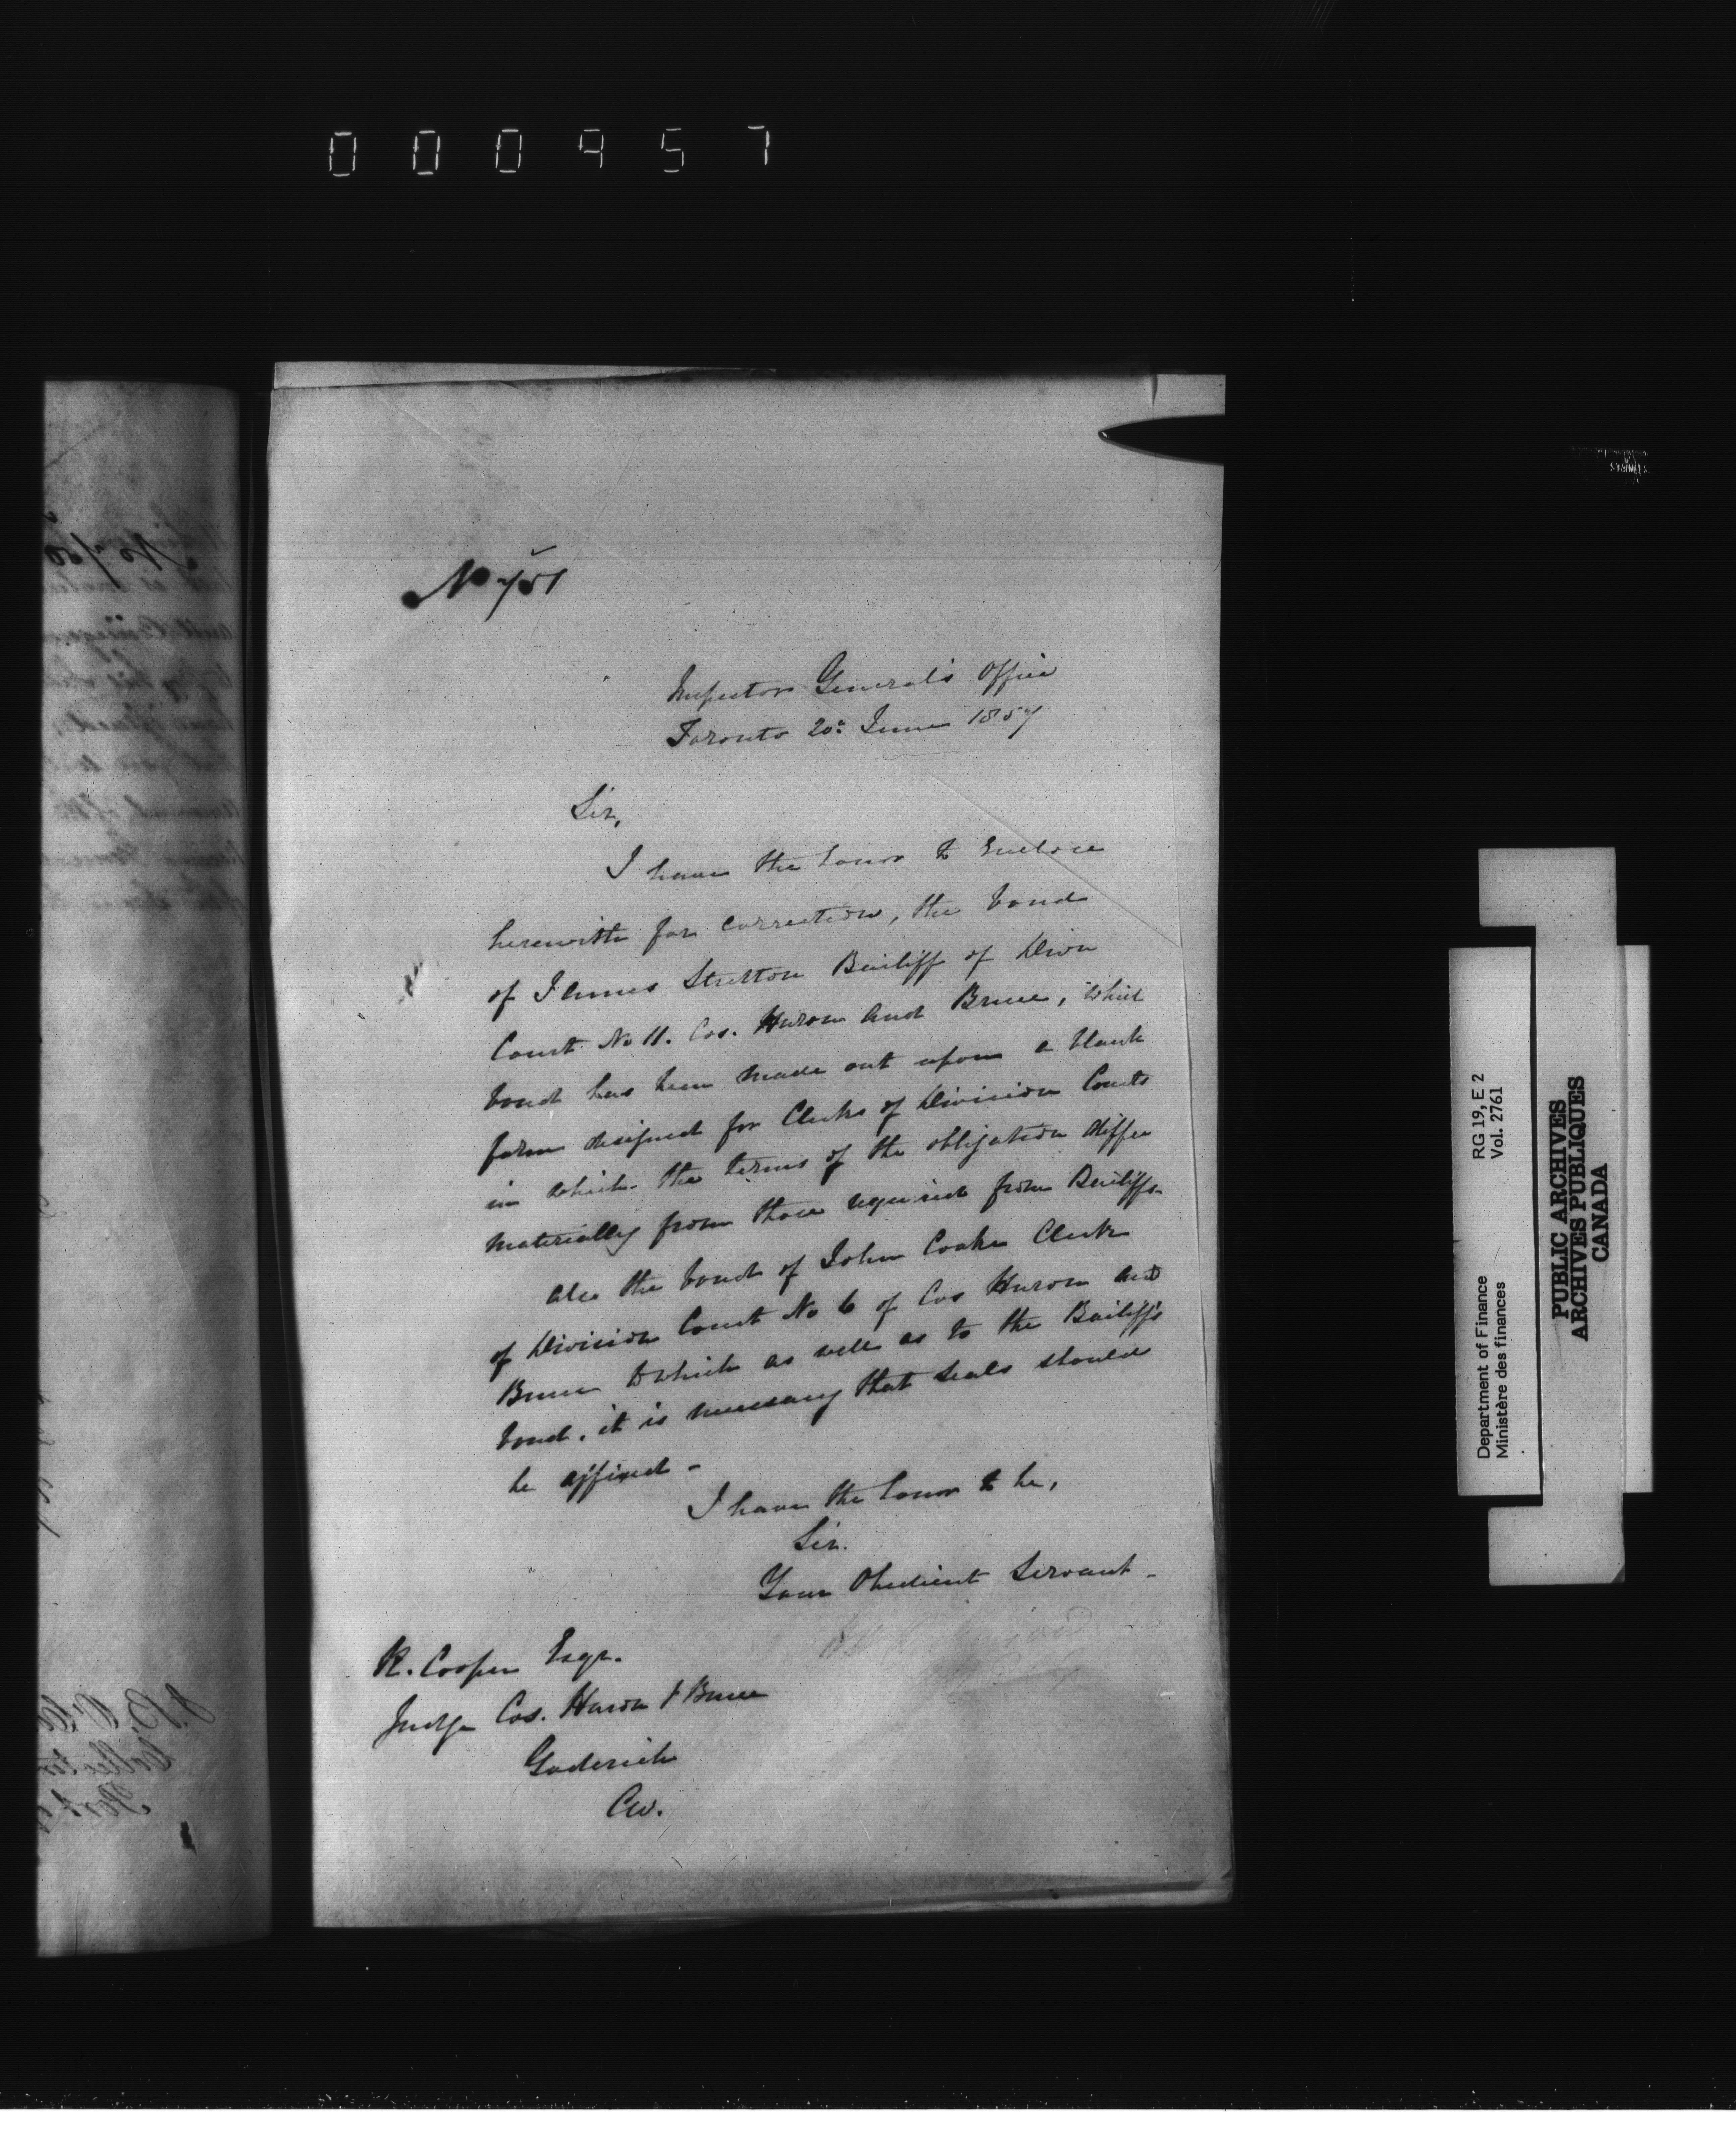 000957
No 751
Inspector General's Office
Toronto 20: June 1857
Sir,
I have the honor to enclose
herewith for correction, the bond
of James Stretton Bailiff of Divn
Court No 11. Cos. Huron and Bruce, which
bond has been made out upon a blank
form designed for Clerks of Division Courts
in which the terms of the obligation differ
materially from those required from Bailiffs.
also the bond of John Cooke Clerk
of Division Court No 6 of Cos Huron and
Bruce to which as well as to the Bailiff's
bond, it is necessary that seals should
be affixed -
I have the honor to be,
Sir.
Your Obedient Servant -
R. Cooper Esqr.
Judge Cos. Huron & Bruce
Goderich
CW.
RG 19, E 2
Vol. 2761
Department of Finance
Ministère des finances
PUBLIC ARCHIVES
ARCHIVES PUBLIQUES
CANADA